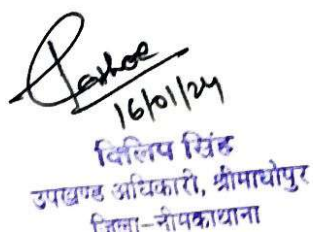 16/01/24
दिलिप सिंह
उपखण्ड अधिकारी, श्रीमाधोपुर
जिला-नीमकाथाना